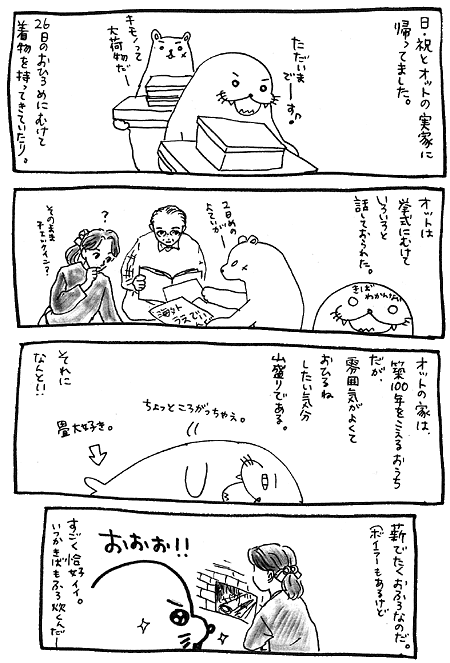 日・祝とオットの実家に
帰ってました。
ただいま
でーす。
キモノって
大荷物だー
26日のおひろめにむけて
着物を持ってきていたり。
オットは
挙式にむけて
いろいろと
話しておられた。
きば
わかんない
2日めの
よていがー
海外
ウエディ
?
そのまま
チェックイン?
オットの家は、
築100年をこえるおうち
だが、
雰囲気がよくて
おひるね
したい気分
山盛りである。
ちょっところがっちゃえ。
畳大好き。
それに
なんと!!
薪でたくおふろなのだ。
(ボイラーもあるけど
おおお!!
すごく恰好イイ。
いつかきばもふろ炊くんだー